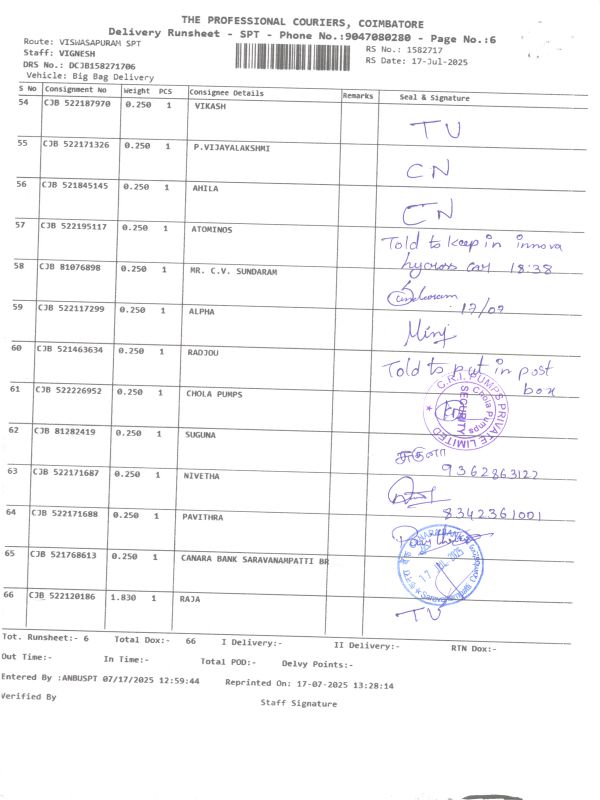 THE PROFESSIONAL COURIERS, COIMBATORE
Delivery Runsheet - SPT - Phone No.:9047080280 - Page No.:6
Route: VISWASAPURAM SPT
RS No.: 1582717
Staff: VIGNESH
RS Date: 17-Jul-2025
DRS No.: DCJB158271706
Vehicle: Big Bag Delivery
S No Consignment No Weight PCS Consignee Details Remarks Seal & Signature
54 CJB 522187970 0.250 1 VIKASH TV
55 CJB 522171326 0.250 1 P.VIJAYALAKSHMI CN
56 CJB 521845145 0.250 1 AHILA CN
57 CJB 522195117 0.250 1 ATOMINOS Told to keep in innova
hycross car 18:38
58 CJB 81076898 0.250 1 MR. C.V. SUNDARAM
17/07
59 CJB 522117299 0.250 1 ALPHA
60 CJB 521463634 0.250 1 RADJOU Told to put in post
box
61 CJB 522226952 0.250 1 CHOLA PUMPS C.R.I. PUMPS PRIVATE LIMITED Chola Pumps SECURITY
62 CJB 81282419 0.250 1 SUGUNA சுகுனா
9362863122
63 CJB 522171687 0.250 1 NIVETHA
8342361001
64 CJB 522171688 0.250 1 PAVITHRA
65 CJB 521768613 0.250 1 CANARA BANK SARAVANAMPATTI BR 17 JUL 2025
66 CJB 522120186 1.830 1 RAJA TV
Tot. Runsheet:- 6 Total Dox:- 66 I Delivery:- II Delivery:- RTN Dox:-
Out Time:- In Time:- Total POD:- Delvy Points:-
Entered By :ANBUSPT 07/17/2025 12:59:44 Reprinted On: 17-07-2025 13:28:14
Verified By
Staff Signature